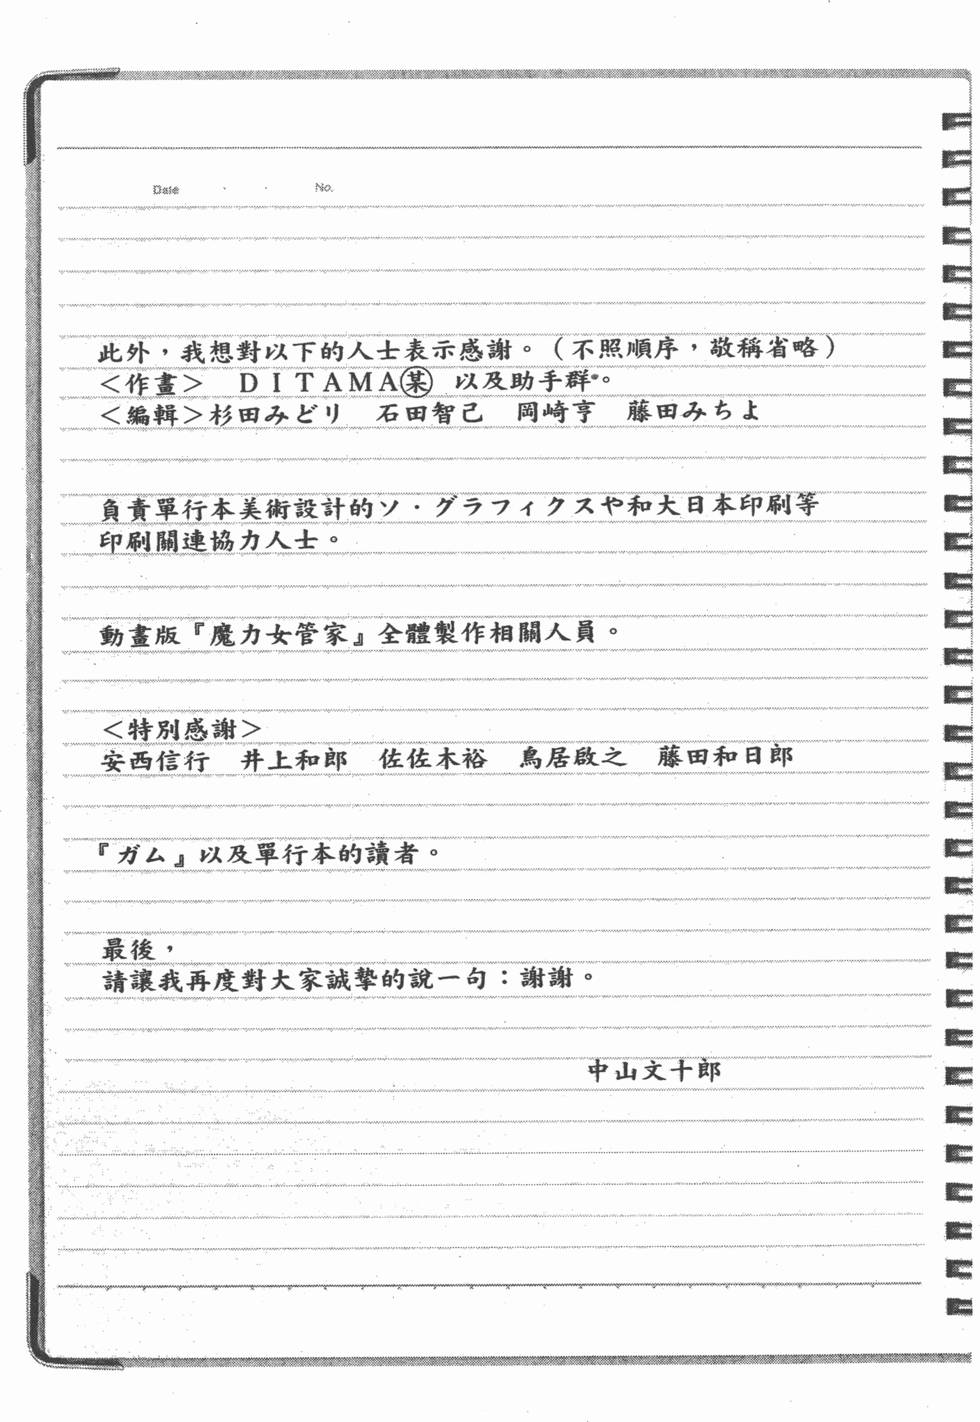 Date ・ ・ No.
此外，我想對以下的人士表示感謝。（不照順序，敬稱省略）
＜作畫＞　ＤＩＴＡＭＡ㊞某　以及助手群。
＜編輯＞杉田みどり　石田智己　岡崎亨　藤田みちよ
負責單行本美術設計的ソ・グラフィクスや和大日本印刷等
印刷關連協力人士。
動畫版『魔力女管家』全體製作相關人員。
＜特別感謝＞
安西信行　井上和郎　佐佐木裕　鳥居啟之　藤田和日郎
『ガム』以及單行本的讀者。
最後，
請讓我再度對大家誠摯的說一句：謝謝。
中山文十郎